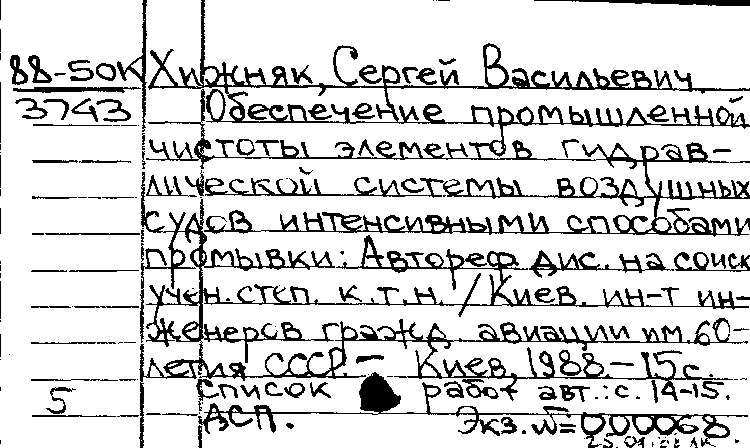 88-50К Хижняк, Сергей Васильевич.
3743 Обеспечение промышленной
чистоты элементов гидрав-
лической системы воздушных
судов интенсивными способами
промывки: Автореф. дис. на соиск
учен. степ. к.т.н. / Киев. ин-т ин-
женеров гражд. авиации им. 60-
летия СССР. — Киев, 1988. — 15 с.
5 Список работ авт.: с. 14-15.
ДСП. Экз. №=000068